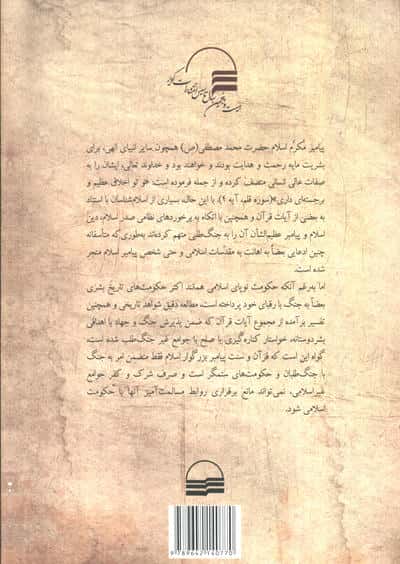 پیامبر مکرّم اسلام حضرت محمد مصطفی(ص) همچون سایر انبیای الهی، برای
بشریت مایه رحمت و هدایت بودند و خواهند بود و خداوند تعالی، ایشان را به
صفات عالی انسانی متصف کرده و از جمله فرموده است: «و تو اخلاقی عظیم و
برجسته‌ای داری»(سوره قلم، آیه ۴). با این حال، بسیاری از اسلام‌شناسان با استناد
به بعضی از آیات قرآن و همچنین با اتکاء به برخوردهای نظامی صدر اسلام، دین
اسلام و پیامبر عظیم‌الشأن آن را به جنگ‌طلبی متهم کرده‌اند به‌طوری‌که متأسفانه
چنین ادعایی بعضاً به اهانت به مقدّسات اسلامی و حتی شخص پیامبر اسلام منجر
شده است.
اما به‌رغم آنکه حکومت نوپای اسلامی همانند اکثر حکومت‌های تاریخ بشری
بعضاً به جنگ با رقبای خود پرداخته است، مطالعه دقیق شواهد تاریخی و همچنین
تفسیر برآمده از مجموع آیات قرآن که ضمن پذیرش جنگ و جهاد با اهدافی
بشردوستانه، خواستار کناره‌گیری یا صلح با جوامع غیر جنگ‌طلب شده است،
گواه این است که قرآن و سنت پیامبر بزرگوار اسلام فقط متضمن امر به جنگ
با جنگ‌طلبان و حکومت‌های ستمگر است و صرف شرک و کفر جوامع
غیراسلامی، نمی‌تواند مانع برقراری روابط مسالمت‌آمیز آنها با حکومت
اسلامی شود.
9789642140770